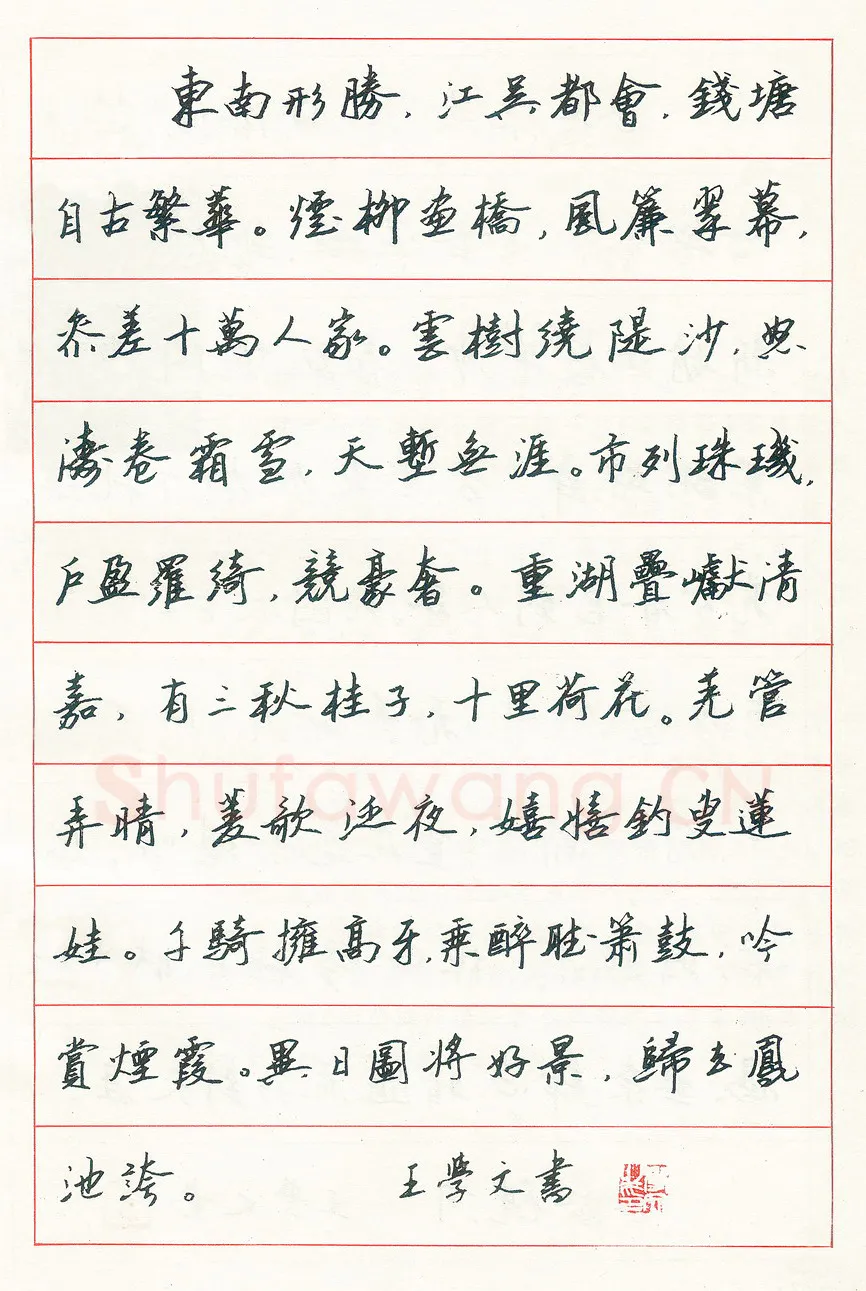 東南形勝，江吳都會，錢塘
自古繁華。煙柳畫橋，風簾翠幕，
參差十萬人家。雲樹繞隄沙，怒
濤卷霜雪，天塹無涯。市列珠璣，
戶盈羅綺，競豪奢。重湖疊巘清
嘉，有三秋桂子，十里荷花。羌管
弄晴，菱歌泛夜，嬉嬉釣叟蓮
娃。千騎擁高牙，乘醉聽簫鼓，吟
賞煙霞。異日圖將好景，歸去鳳
池誇。 王學文書
Shufawang.CN